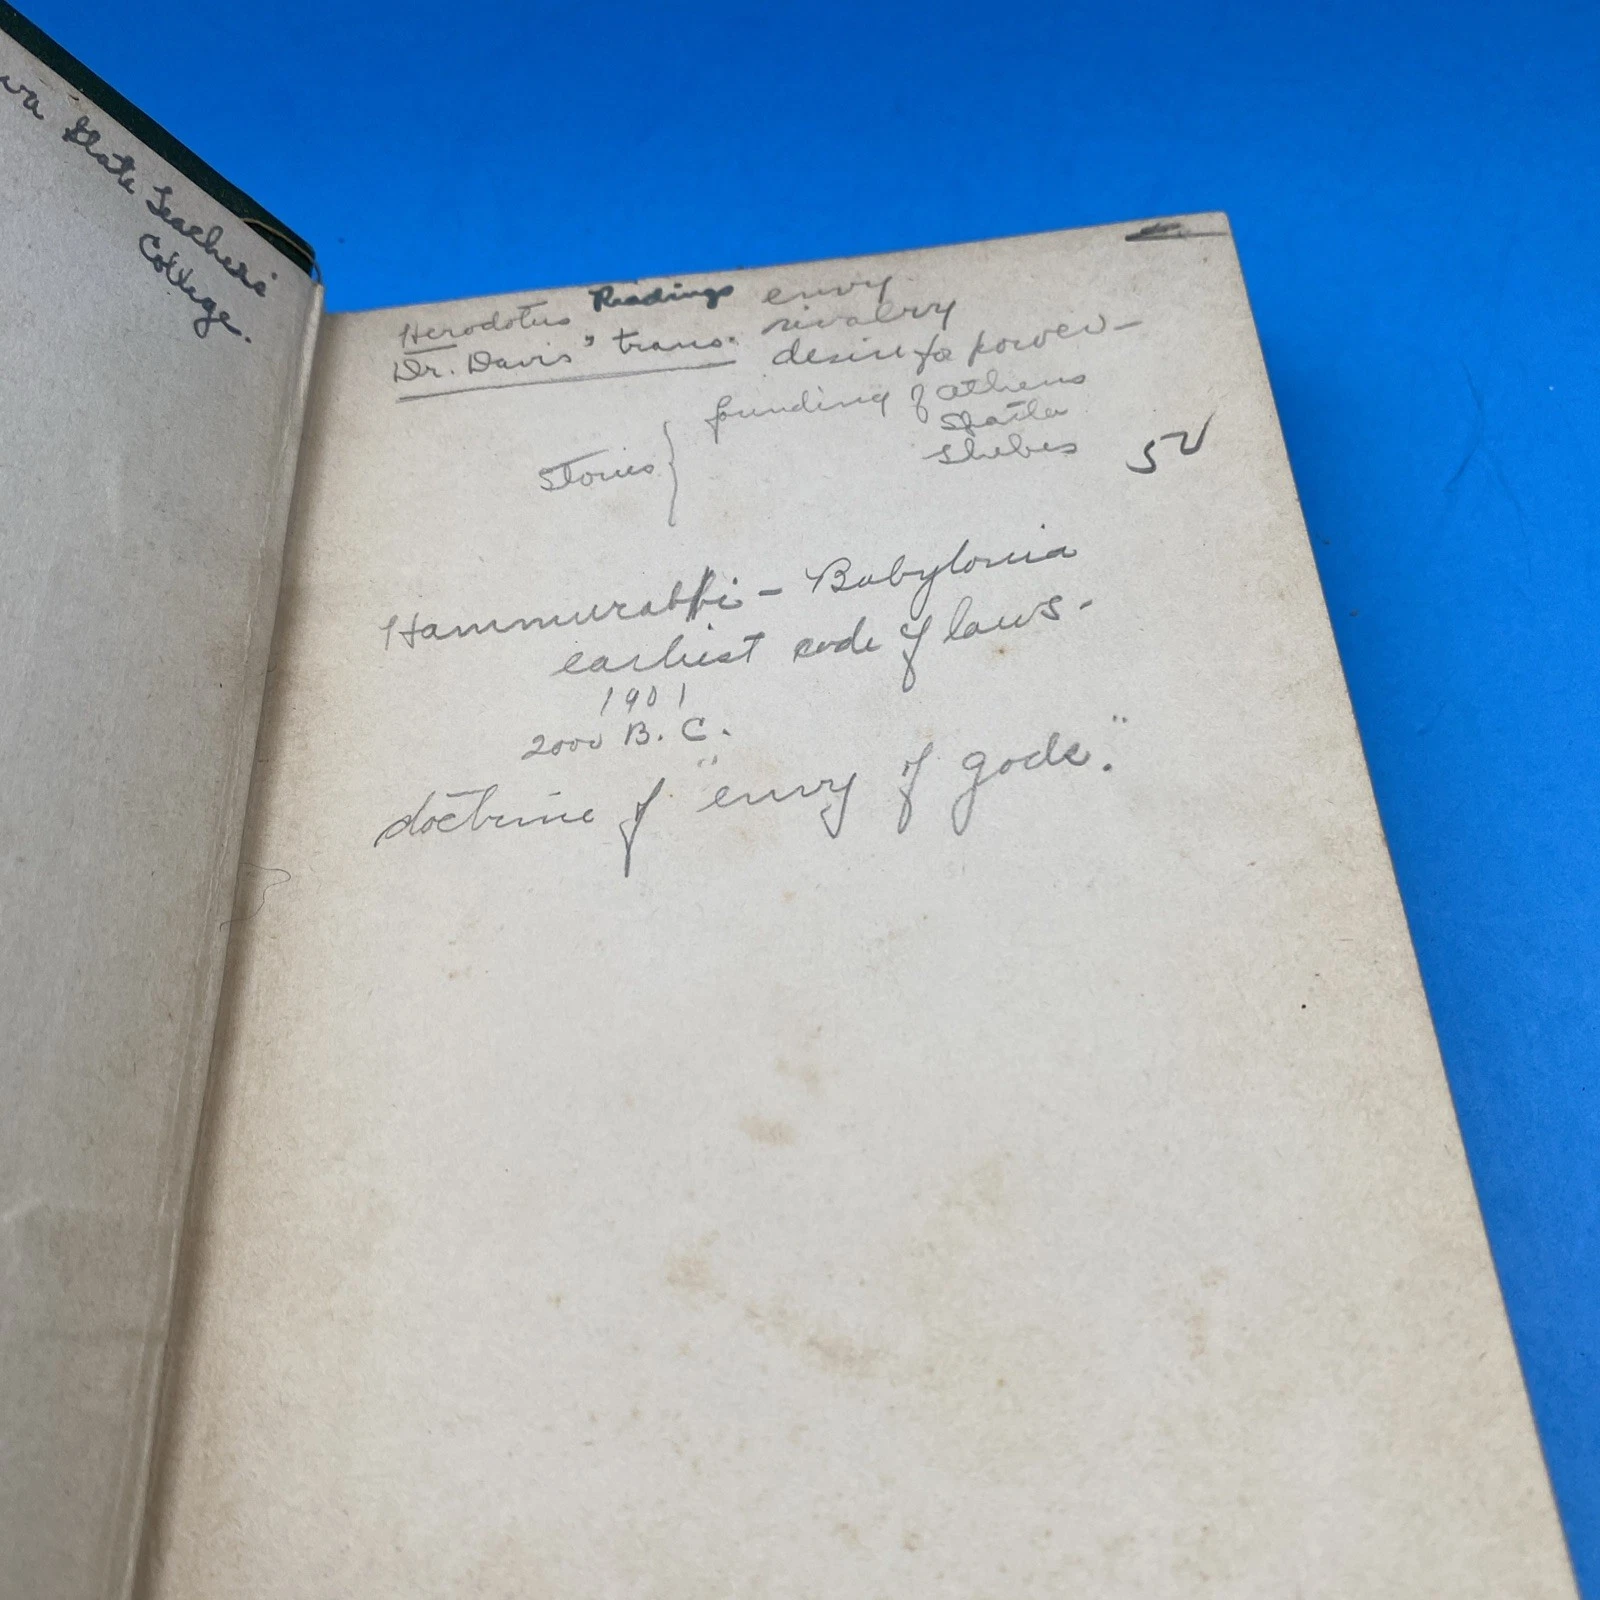 wa State Teachers'
College.
Herodotus Readings envy
Dr. Davis' trans. rivalry
desire for power—
Stories { founding of Athens
Sparta
Thebes
50
Hammurabbi — Babylonia
earliest code of laws.
1901
2000 B.C.
doctrine of "envy of gods."